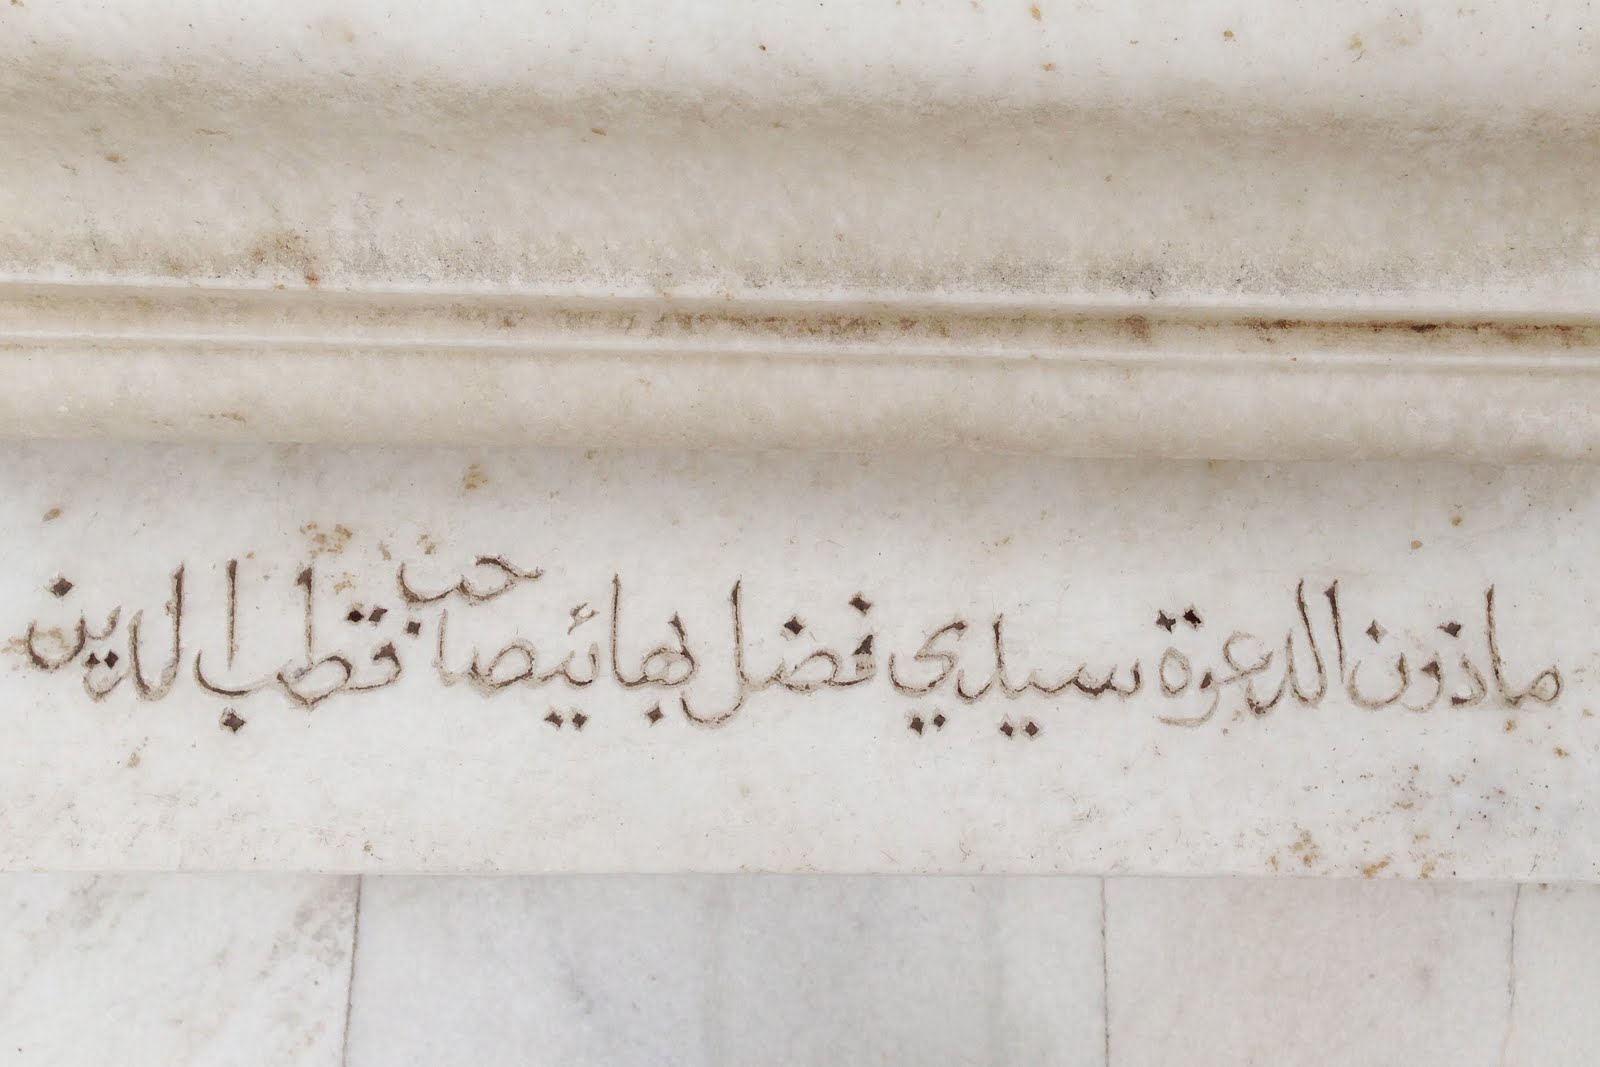 ماذون الدعوة سيدي فضل بهائيصاحب قطب الدين